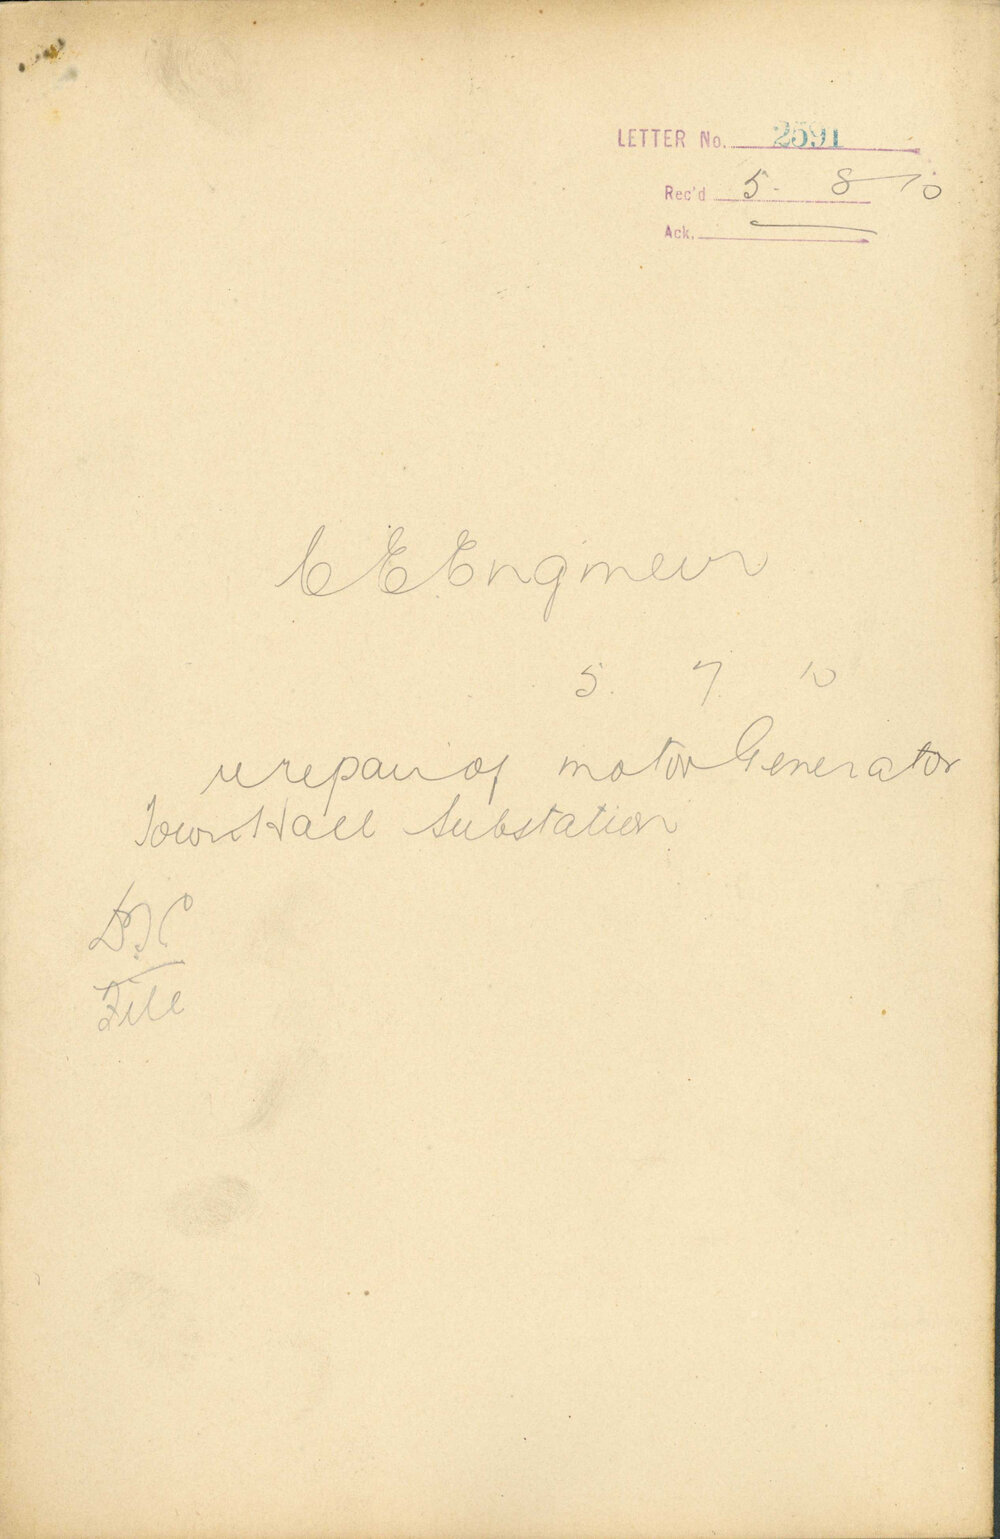 LETTER No. 2591
Rec'd 5 - 8 - 10
Ack.
C E Engineer
5. 7. 10
re repair of motor Generator
Town Hall Substation
File